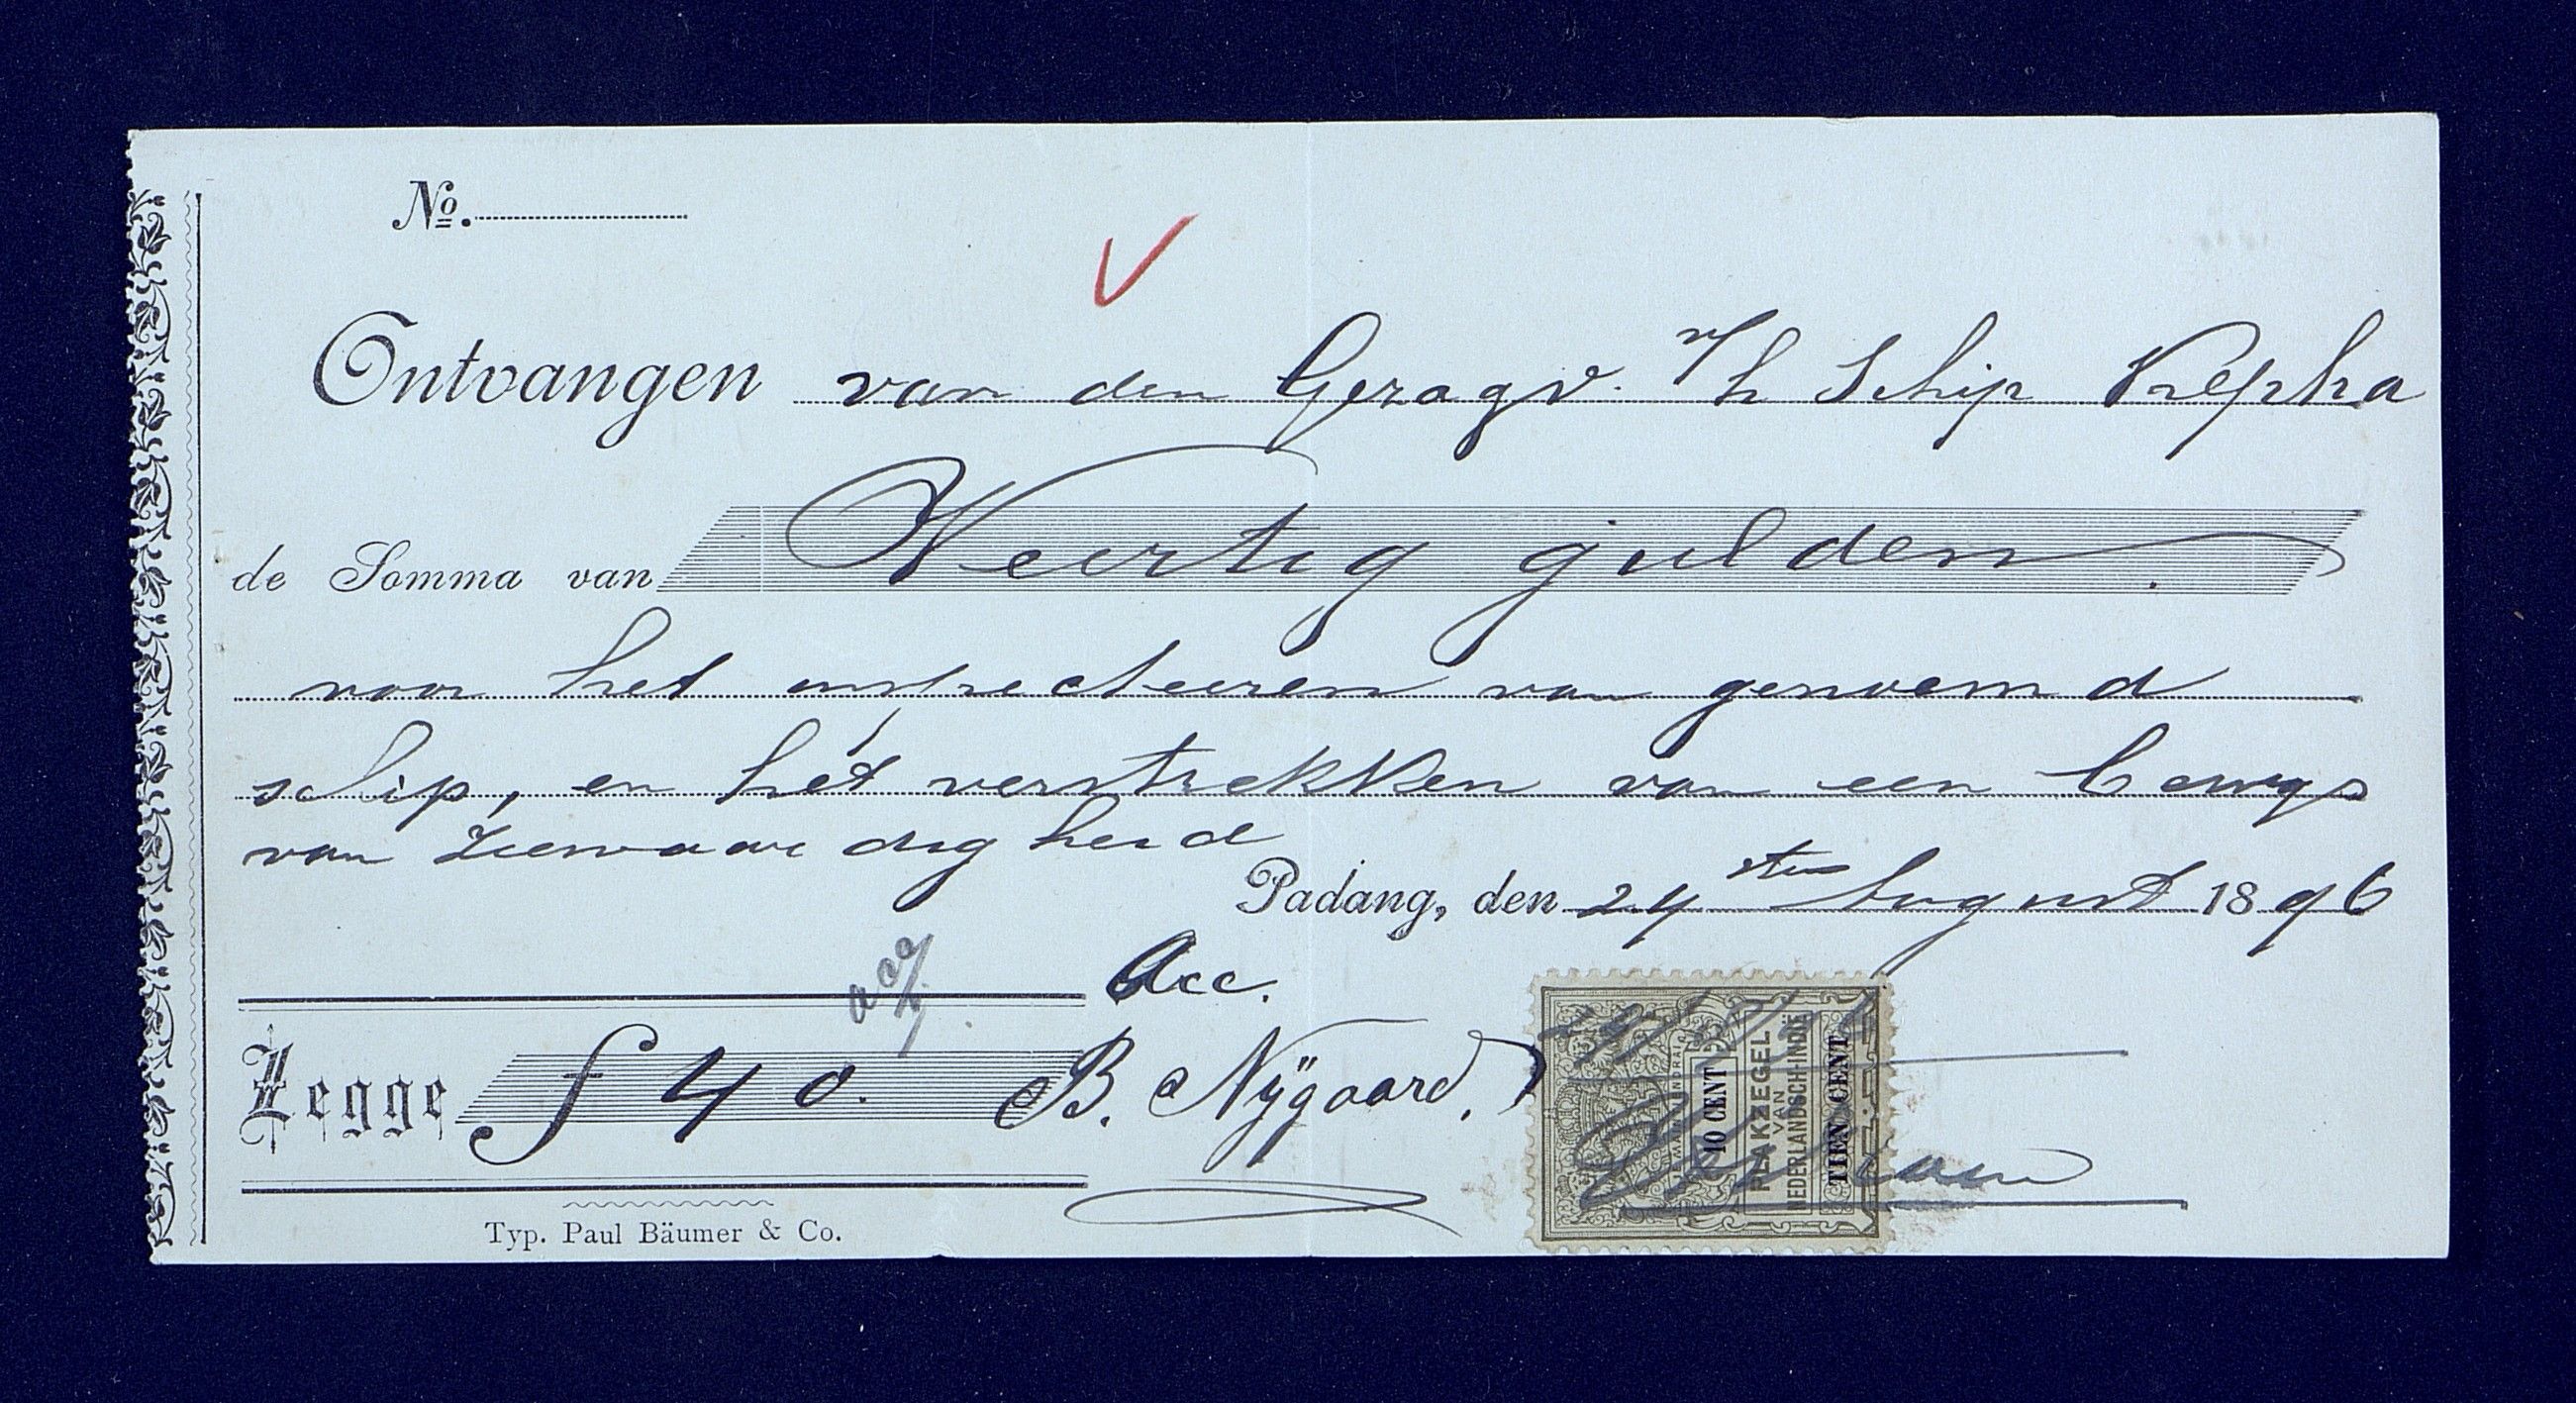 No.
Ontvangen van den Gezagv. v/h Schip Kepha
de Somma van Veertig gulden.
voor het inspecteeren van genoemd
schip, en het verstrekken van een bewys
van Zeewaardigheid
Padang, den 24sten August 1896
Acc.
Zegge f 40. B. Nÿgaard.
10 CENT
PLAKZEGEL
VAN
NEDERLANDSCH-INDIË
TIEN CENT
Typ. Paul Bäumer & Co.